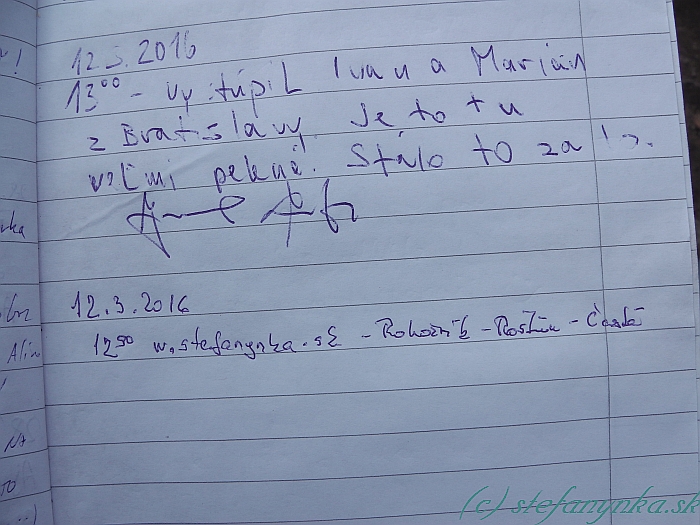 12.3.2016
13⁰⁰ - vystúpil Ivan a Marián
z Bratislavy. Je to tu
veľmi pekné. Stálo to za to.
12.3.2016
12⁵⁰ w.stefanynka.sk - Rohožník - Roštún - Častá
(c) stefanynka.sk